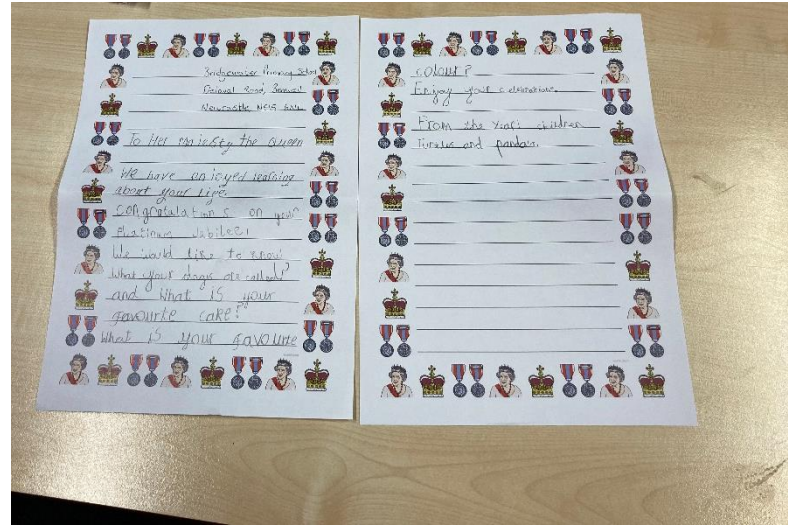 Bridgewater Primary School
Delaval Road, Benwell
Newcastle NE15 6NL
To Her majesty the Queen
We have enjoyed learning
about your life.
Congratulations on your
Platinum Jubilee!
We would like to know
What your dogs are called?
and What is your
favourite cake?
What is your favourite
colour?
Enjoy your celebrations
From the Year 1 children
Turtles and pandas.